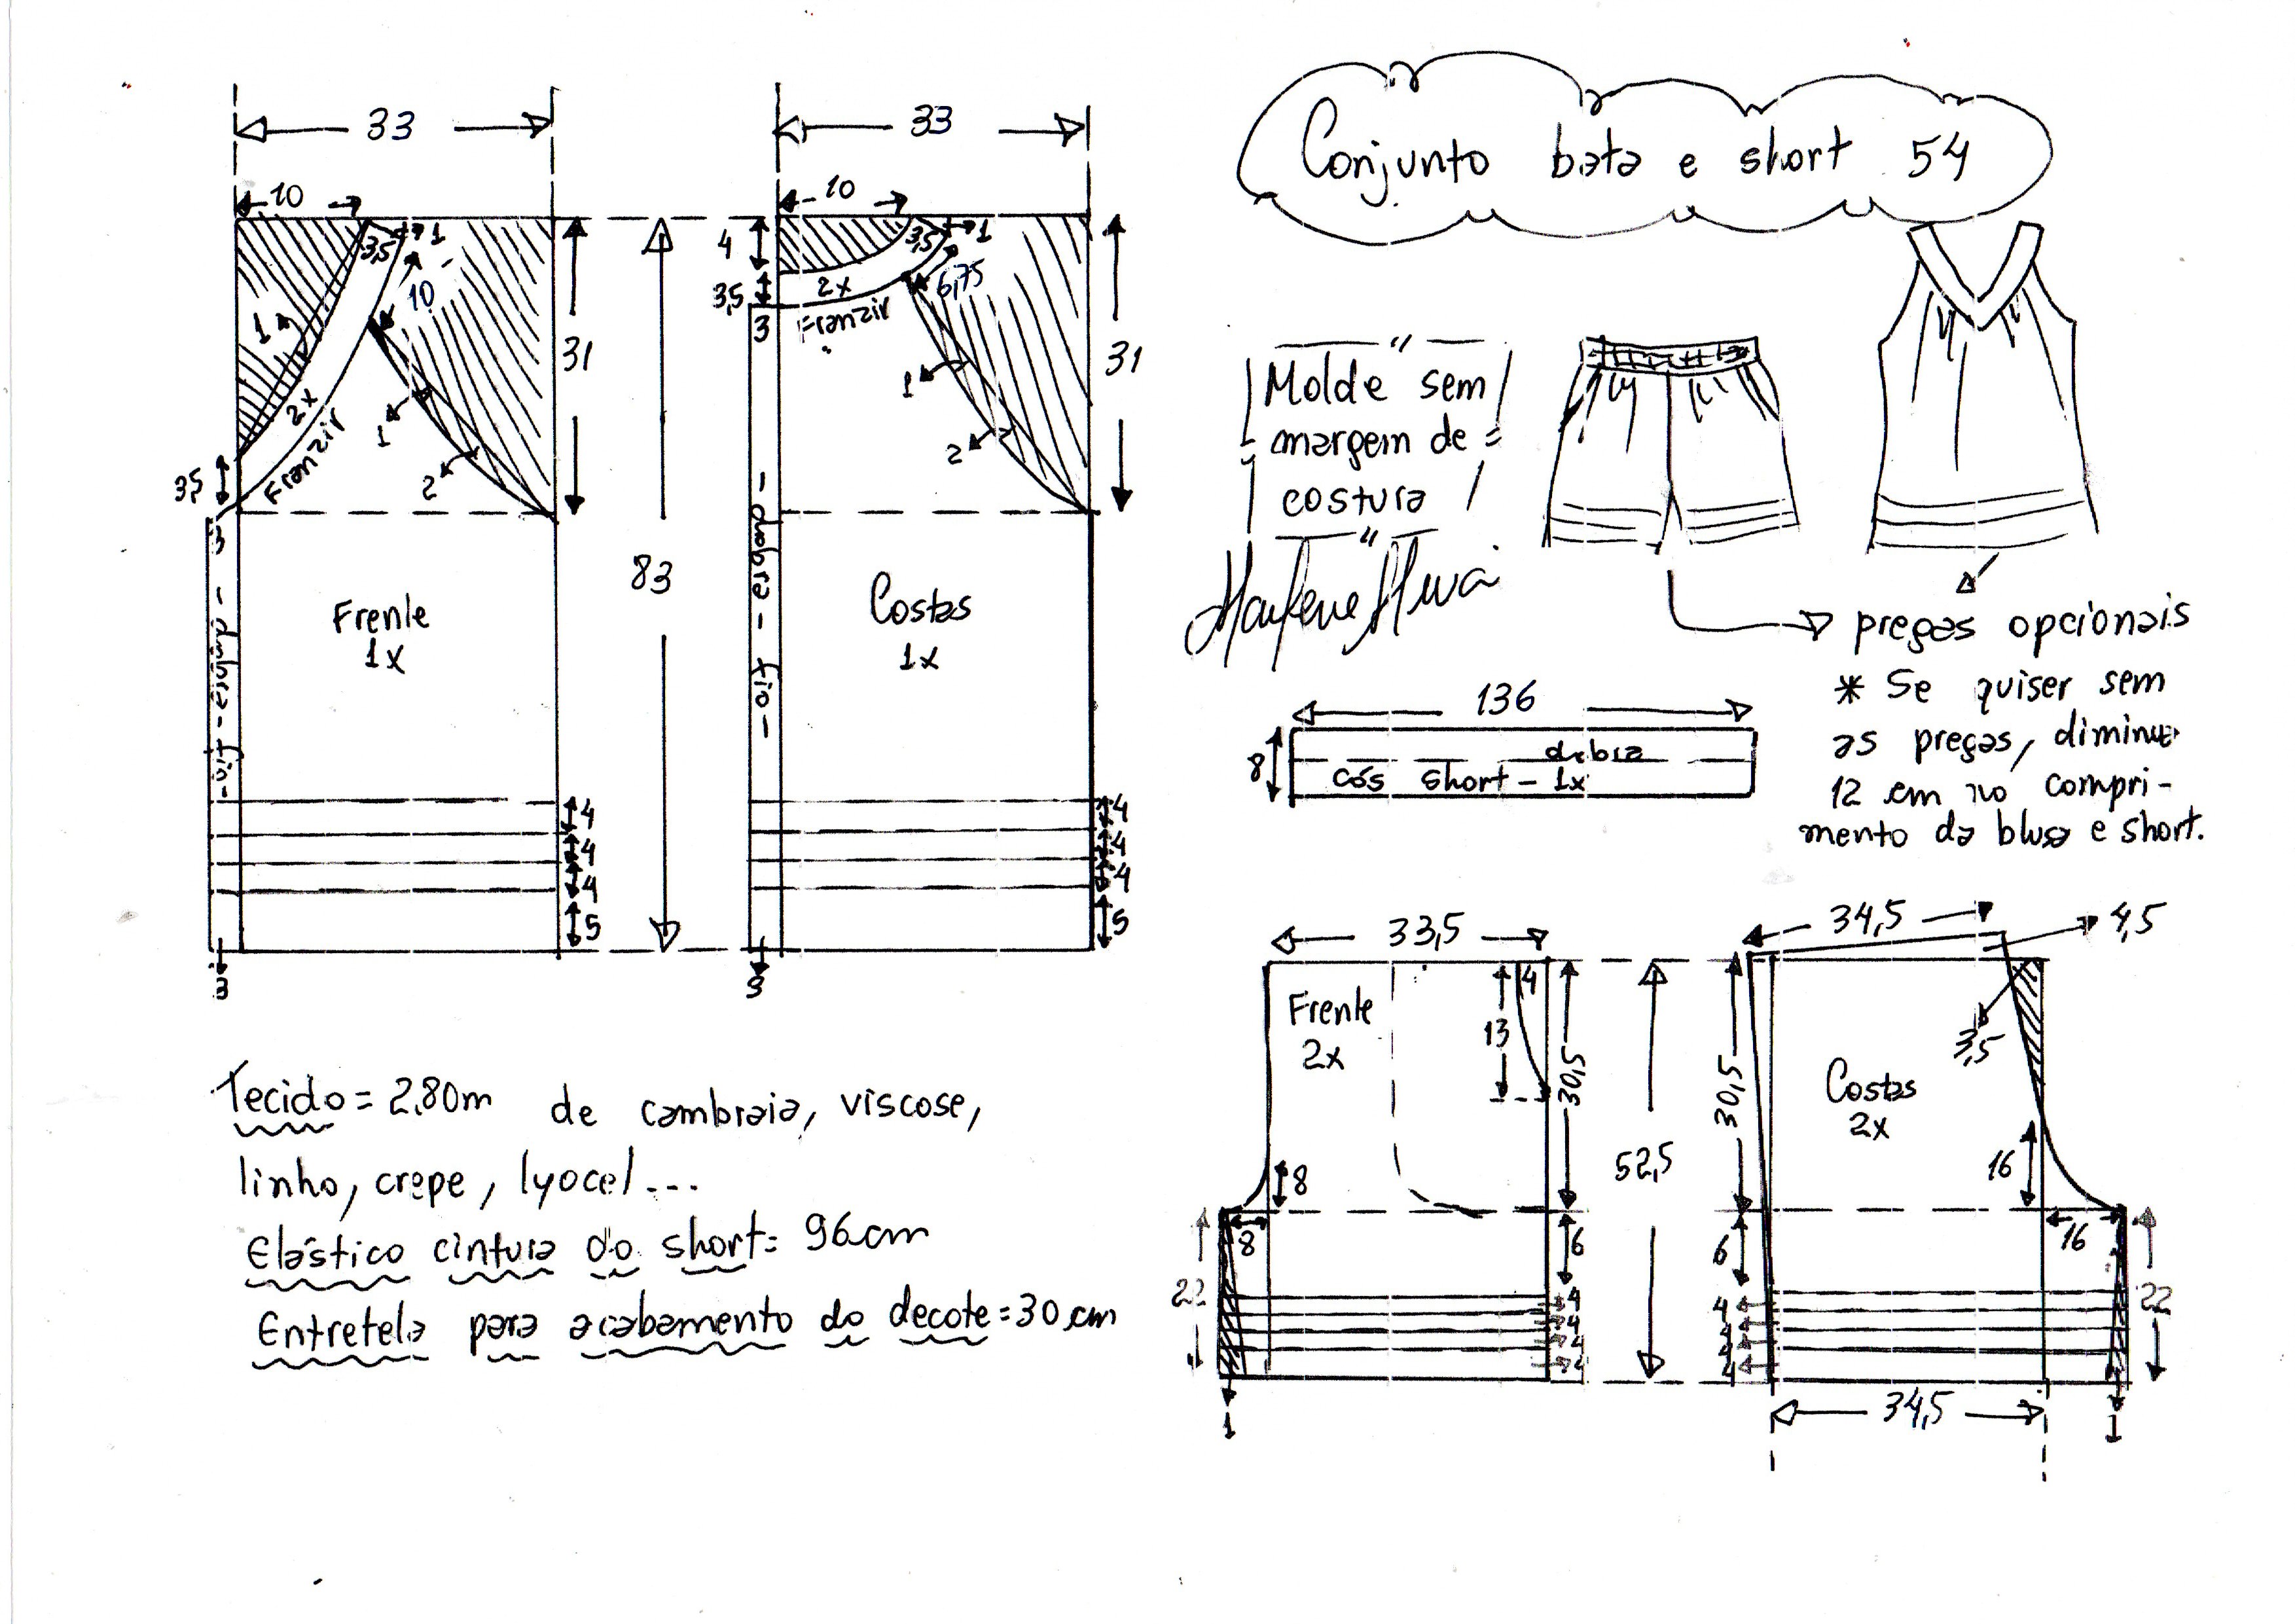 Conjunto bata e short 54
33
10
3,5
1
10
1
2x
Franzir
3,5
3
1
2
31
Frente
1x
4
4
4
5
3
83
33
10
4
3,5
1
3,5
2x
6,75
Franzir
3
1
2
31
- dobra - fio -
Costas
1x
4
4
4
5
3
Molde sem
margem de
costura
pregas opcionais
* Se quiser sem
as pregas, diminue
12 cm no compri-
mento da blusa e short.
136
8
dobra
cós short - 1x
Tecido = 2,80m de cambraia, viscose,
linho, crepe, lyocel...
Elástico cintura do short = 96cm
Entretela para acabamento do decote = 30cm
33,5
Frente
2x
4
13
30,5
8
8
22
6
4
4
4
4
1
52,5
34,5
4,5
3,5
30,5
Costas
2x
16
16
6
4
4
4
4
22
34,5
1